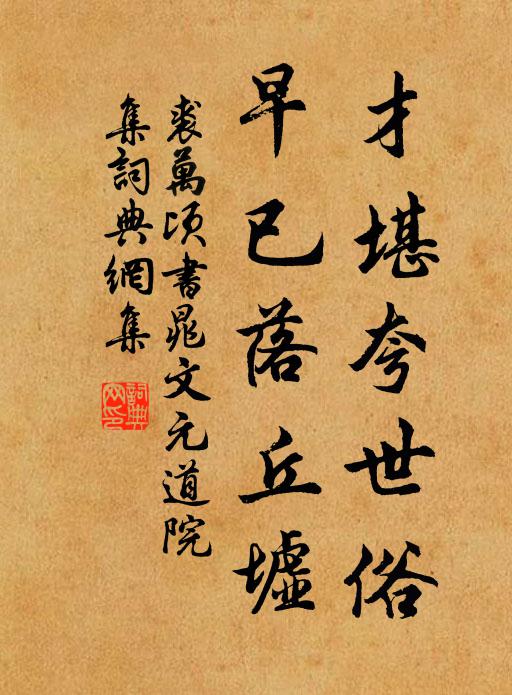 才堪夸世俗
早已落丘墟
裘萬頃書晁文元道院
集詞典網集
詞典網印